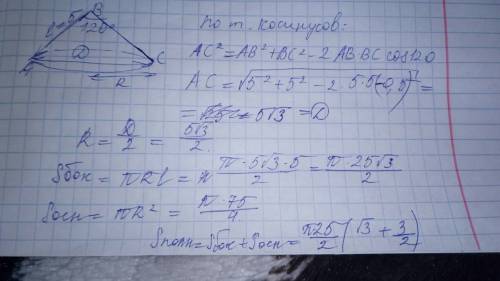 B
5
l=5
120°
D
A
C
R
по т. косинусов:
AC² = AB² + BC² - 2 AB·BC cos120
AC = √5² + 5² - 2 5·5(-0,5) =
= 5√3 = D
R = D/2 = 5√3/2
Sбок = πRl = π·5√3·5/2 = π·25√3/2
Sосн = πR² = π·75/4
Sполн = Sбок + Sосн = π25/2 (√3 + 3/2)